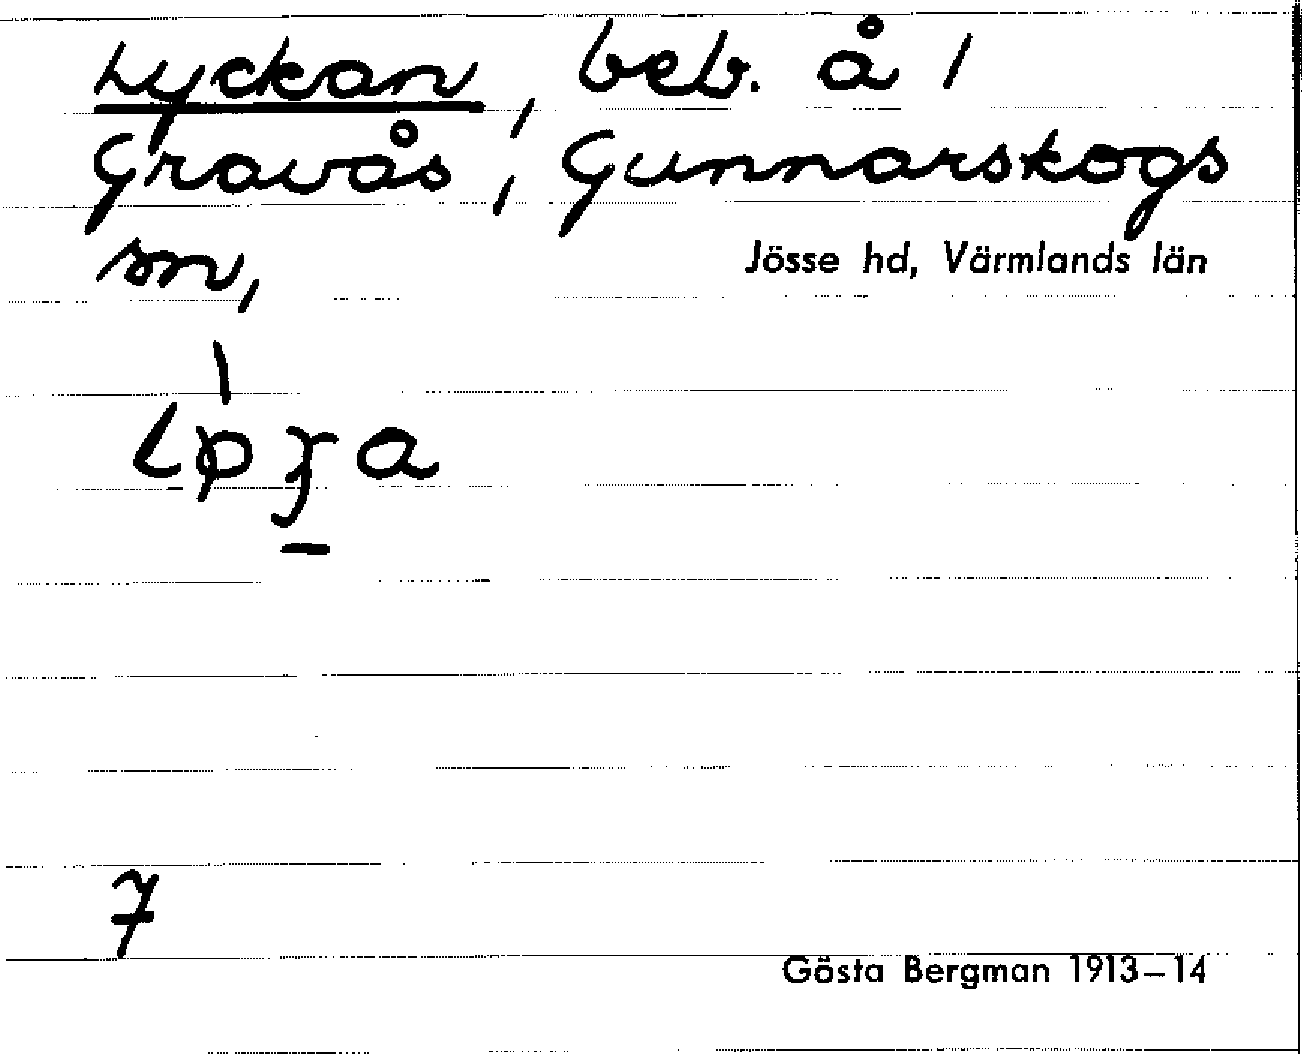 Lyckan, beb. å /
Gravås, Gunnarskogs
sn,
Jösse hd, Värmlands län
7
Gösta Bergman 1913–14